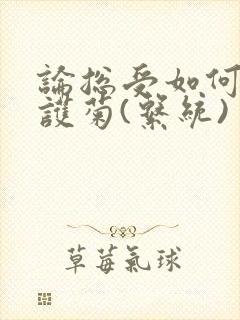 論總受如何
護菊(繫統)
草莓氣球